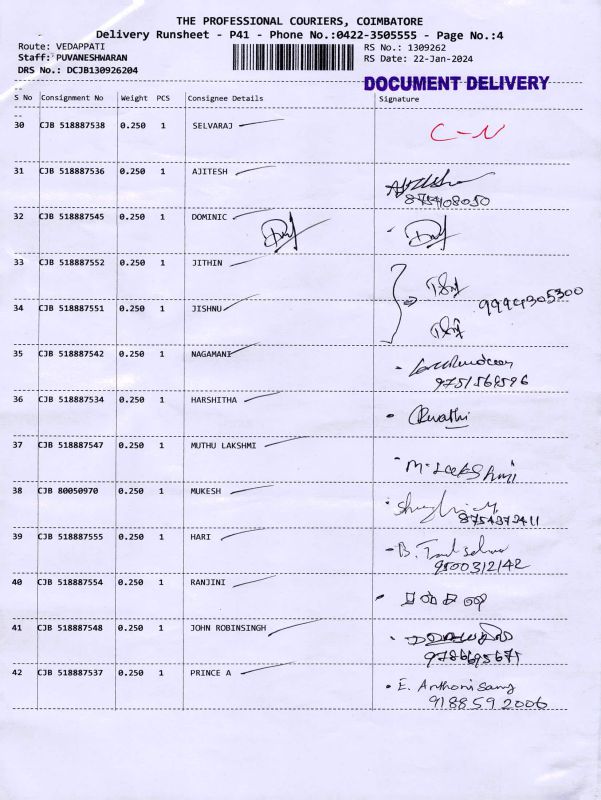 THE PROFESSIONAL COURIERS, COIMBATORE
Delivery Runsheet - P41 - Phone No.:0422-3505555 - Page No.:4
Route: VEDAPPATI
RS No.: 1309262
Staff: PUVANESHWARAN
RS Date: 22-Jan-2024
DRS No.: DCJB130926204
DOCUMENT DELIVERY
S No Consignment No Weight PCS Consignee Details Signature
30 CJB 518887538 0.250 1 SELVARAJ C-N
31 CJB 518887536 0.250 1 AJITESH
32 CJB 518887545 0.250 1 DOMINIC
33 CJB 518887552 0.250 1 JITHIN
9994305300
34 CJB 518887551 0.250 1 JISHNU
35 CJB 518887542 0.250 1 NAGAMANI
9751568596
36 CJB 518887534 0.250 1 HARSHITHA
37 CJB 518887547 0.250 1 MUTHU LAKSHMI
38 CJB 80050970 0.250 1 MUKESH
8754372411
39 CJB 518887555 0.250 1 HARI
9500312142
40 CJB 518887554 0.250 1 RANJINI
41 CJB 518887548 0.250 1 JOHN ROBINSINGH
9786695671
42 CJB 518887537 0.250 1 PRINCE A E. Anthonisamy
9188592006